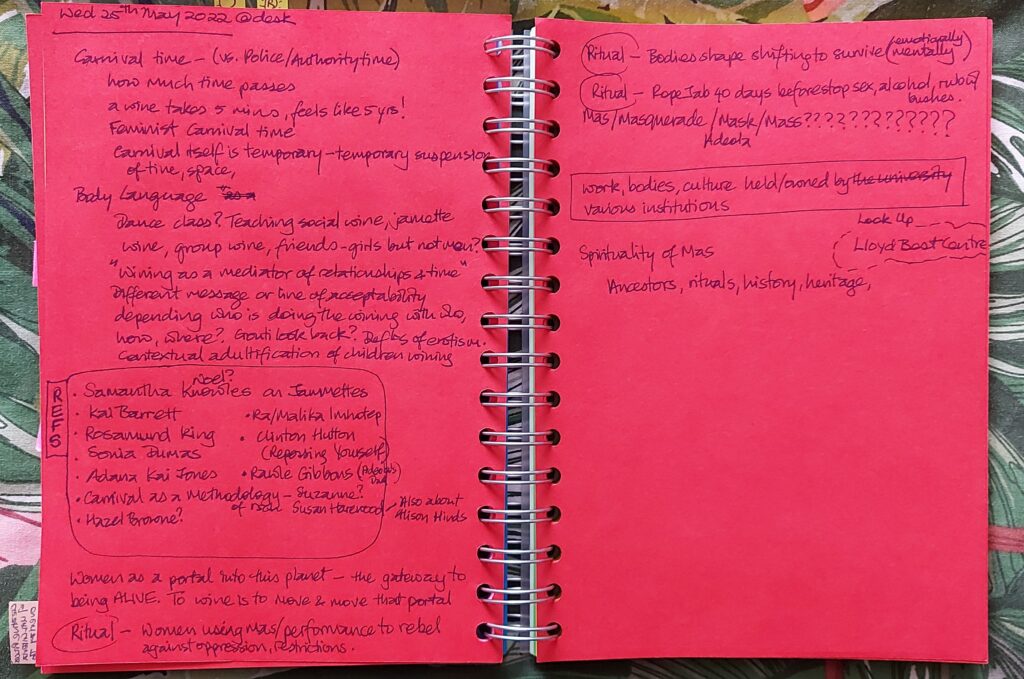 Wed 25th May 2022 @desk
Carnival time - (vs. Police/Authority time)
how much time passes
a wine takes 5 mins, feels like 5 yrs!
Feminist Carnival time
Carnival itself is temporary - temporary suspension
of time, space,
Body Language
Dance class? Teaching social wine, jamette
wine, group wine, friends - girls but not men?
"Wining as a mediator of relationships & time"
Different message or line of acceptability
depending who is doing the wining with who,
how, where? Grouti look back? Defs of erotism.
Contextual adultification of children wining
REFS
Noel?
• Samantha Knowles on Jammettes
• Kai Barrett
• Rosamund King
• Sonia Dumas
• Adana Kai Jones
• Ra/Malika Imhotep
• Clinton Hutton
(Repossing Yourself)
• Rawle Gibbons (Adeola's Dad)
• Carnival as a Methodology - Suzanne?
of Susan Harewood - Also about
Alison Hinds
• Hazel Browne?
Women as a portal into this planet - the gateway to
being ALIVE. To wine is to move & move that portal
Ritual - Women using mas/performance to rebel
against oppression, restrictions.
Ritual - Bodies shape shifting to survive (emotionally mentally)
Ritual - Rope Jab 40 days before stop sex, alcohol,
bushes.
Mas/Masquerade/Mask/Mass?????????????
Adeola
work, bodies, culture held/owned by the university
various institutions
Look Up
Lloyd Best Centre
Spirituality of Mas
Ancestors, rituals, history, heritage,